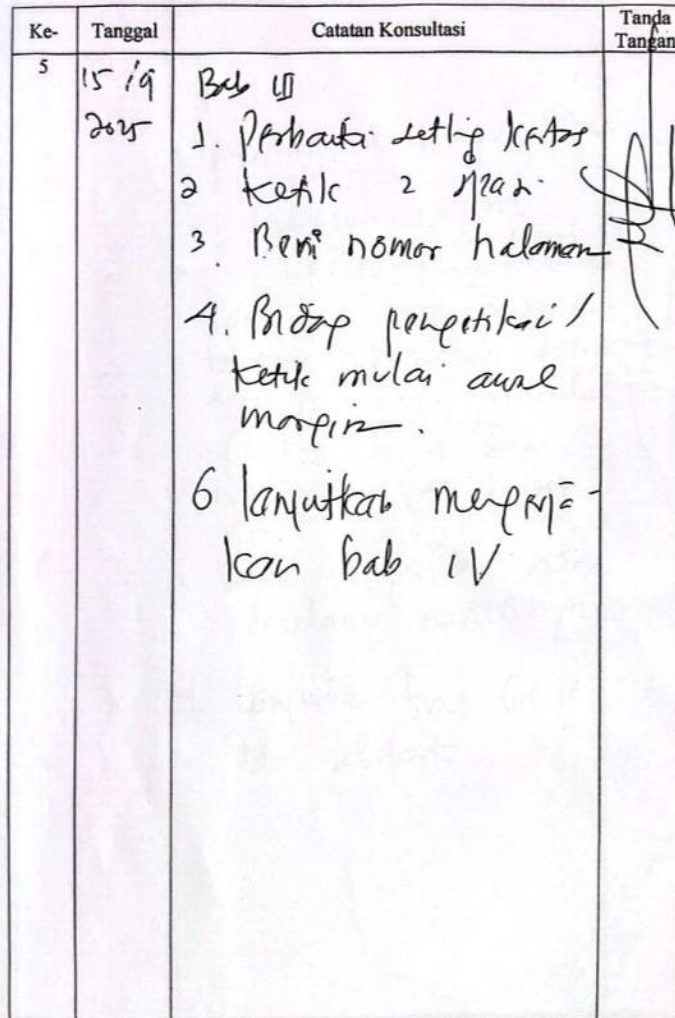 Ke- Tanggal Catatan Konsultasi Tanda Tangan
5 15/9 Bab III
2025 1. Perbaiki setting kertas
2 Ketik 2 spasi
3. Beri nomor halaman
4. pengetikan /
ketik mulai awal
margin.
6 lanjutkan mengerja-
kan bab IV